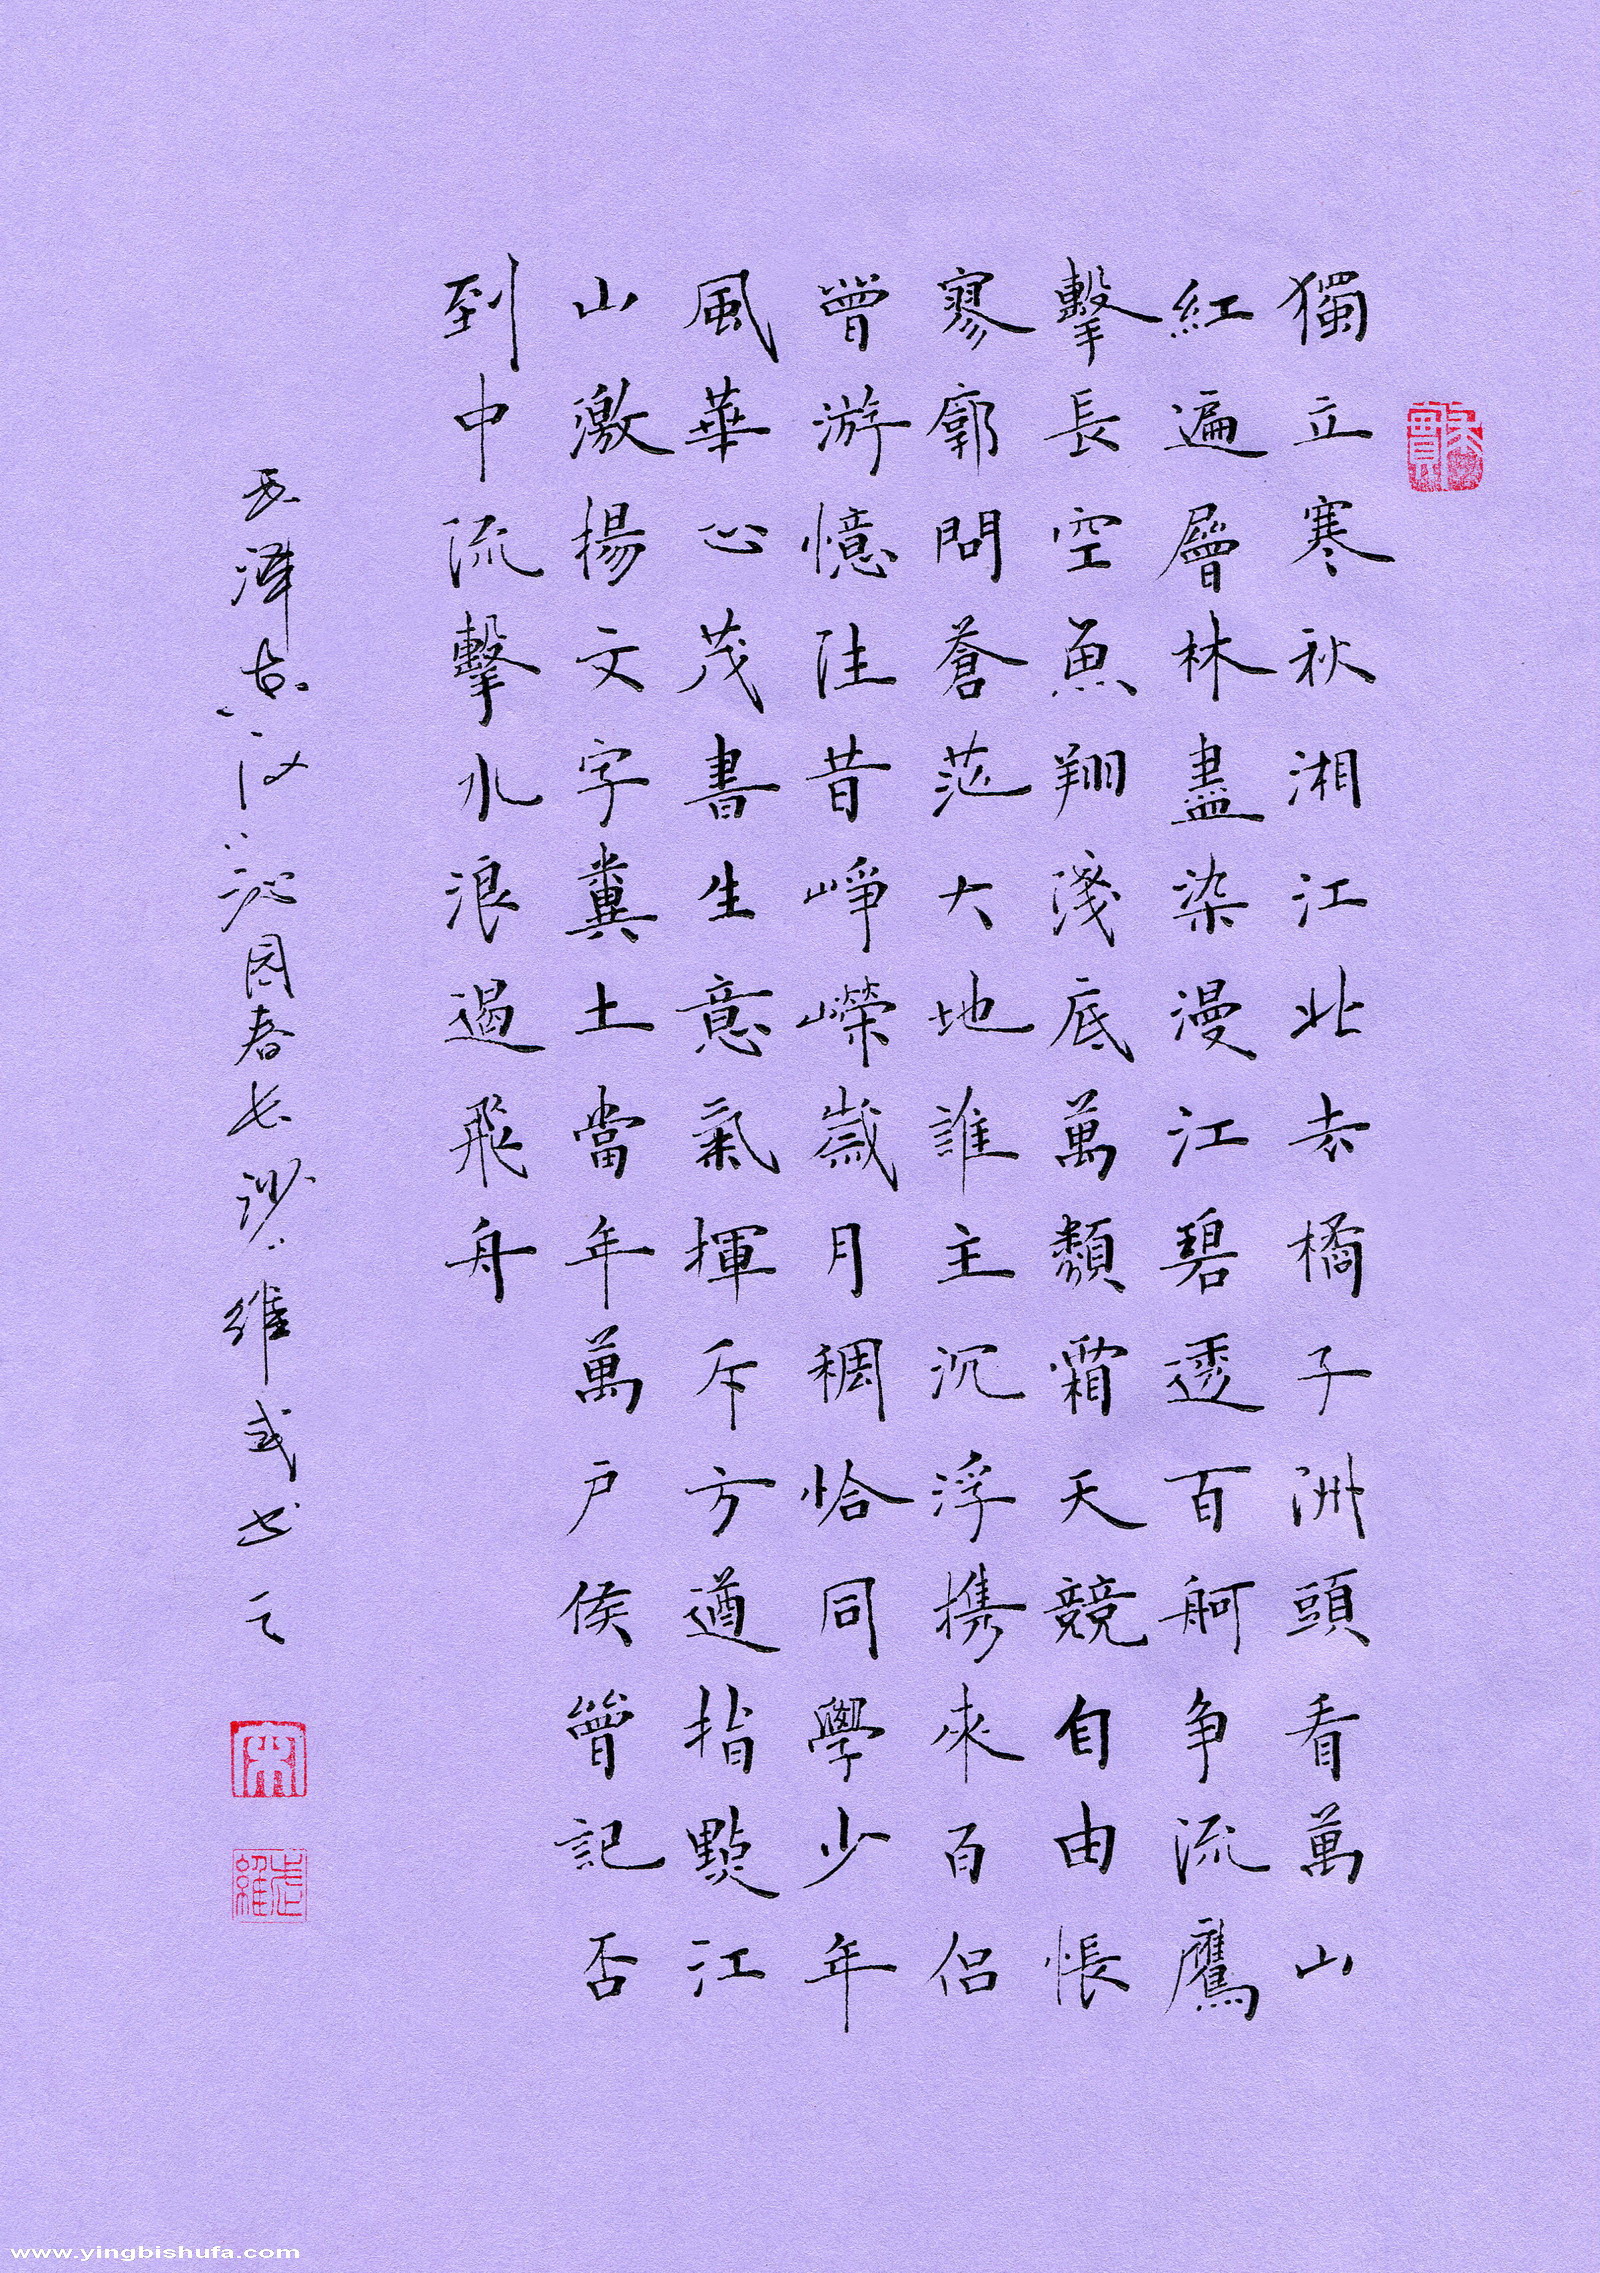 獨立寒秋湘江北去橘子洲頭看萬山
紅遍層林盡染漫江碧透百舸争流鷹
擊長空魚翔淺底萬類霜天競自由悵
寥廓問蒼茫大地誰主沉浮携來百侣
曾游憶往昔崢嶸歲月稠恰同學少年
風華心茂書生意氣揮斥方遒指點江
山激揚文字糞土當年萬户侯曾記否
到中流擊水浪遏飛舟
毛澤东词沁园春长沙维武书之
宋
www.yingbishufa.com